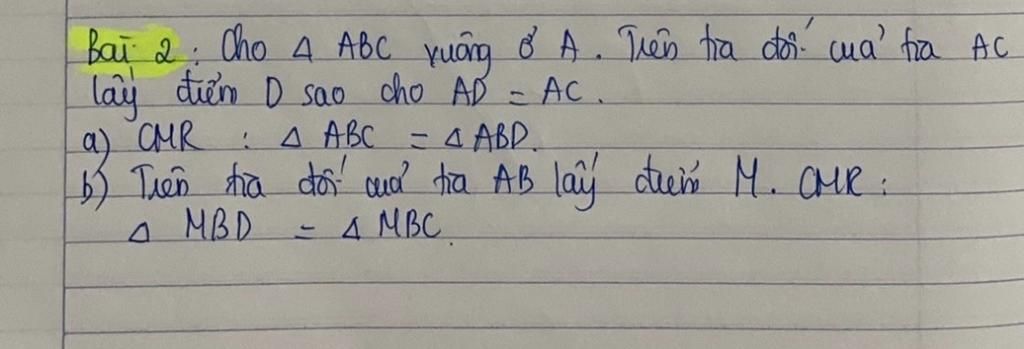 Bài 2 : Cho Δ ABC vuông ở A. Trên tia đối của tia AC
lấy điểm D sao cho AD = AC.
a) CMR : Δ ABC = Δ ABD.
b) Trên tia đối của tia AB lấy điểm M. CMR :
Δ MBD = Δ MBC.